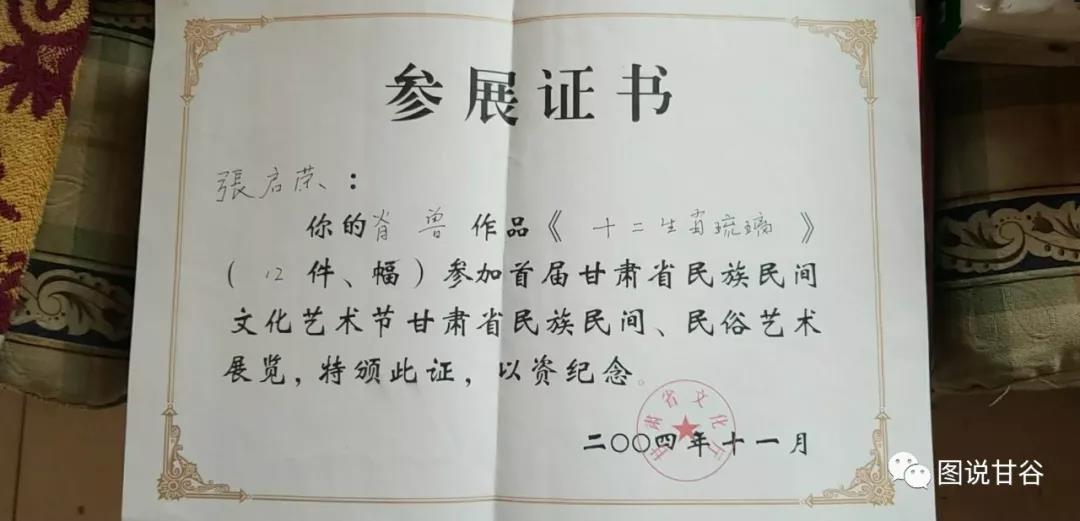 参展证书
張启荣：
你的脊兽作品《十二生肖琉璃》
（12件、幅）参加首届甘肃省民族民间
文化艺术节甘肃省民族民间、民俗艺术
展览，特颁此证，以资纪念。
甘肃省文化厅
二〇〇四年十一月
图说甘谷